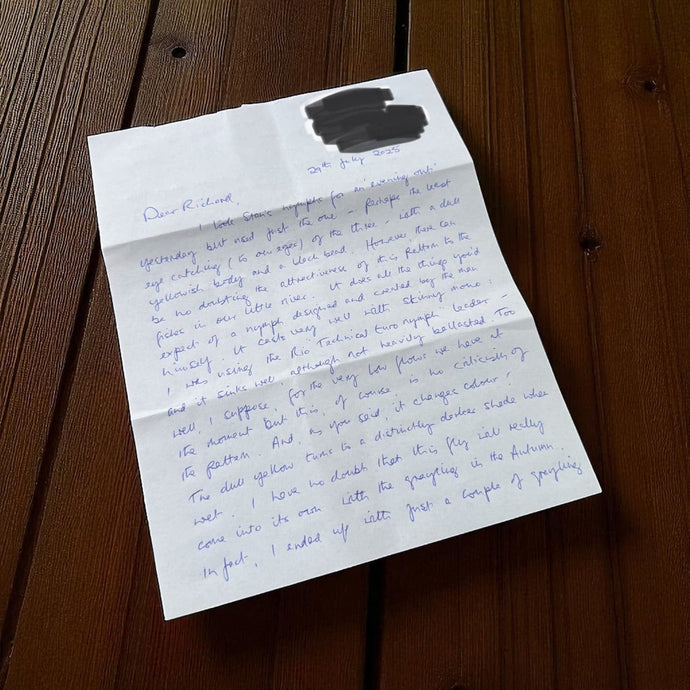 29th July 2025
Dear Richard,
I took Stan's nymphs for an 'evening out'
yesterday but used just the one - perhaps the least
eye catching (to our eyes) of the three - with a dull
yellowish body and a black bead. However, there can
be no doubting the attractiveness of this pattern to the
fishes in our little river. It does all the things you'd
expect of a nymph designed and created by the man
himself. It casts very well with skinny mono:
I was using the Rio Technical euro nymph leader -
and it sinks well, although not heavily ballasted. Too
well, I suppose, for the very low flows we have at
the moment but this, of course, is no criticism of
the pattern. And, as you said, it changes colour!
The dull yellow turns to a distinctly darker shade when
wet. I have no doubt that this fly will really
come into its own with the grayling in the Autumn.
In fact, I ended up with just a couple of grayling